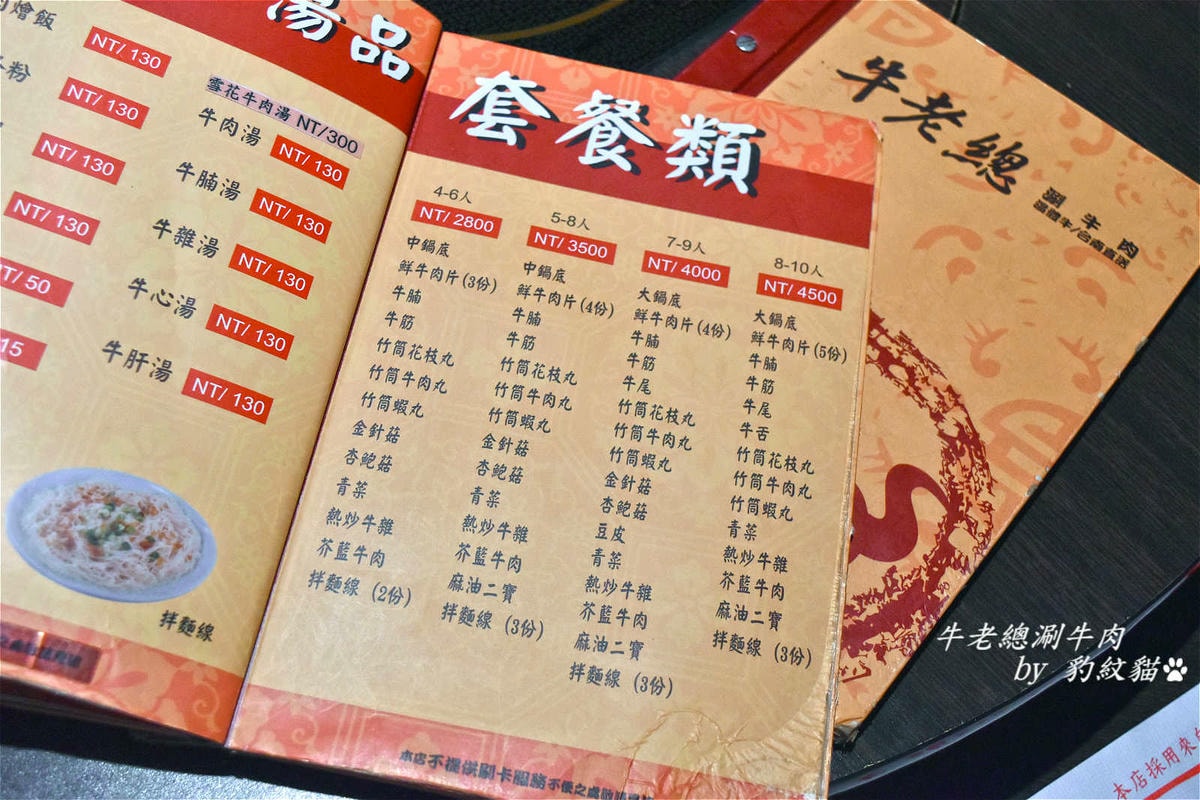 湯品
燴飯
NT/ 130
粉
NT/ 130
NT/ 130
NT/ 130
NT/ 50
15
雪花牛肉湯 NT/300
牛肉湯 NT/ 130
牛腩湯 NT/ 130
牛雜湯 NT/ 130
牛心湯 NT/ 130
牛肝湯 NT/ 130
拌麵線
套餐類
4-6人
NT/ 2800
中鍋底
鮮牛肉片(3份)
牛腩
牛筋
竹筒花枝丸
竹筒牛肉丸
竹筒蝦丸
金針菇
杏鮑菇
青菜
熱炒牛雜
芥藍牛肉
拌麵線 (2份)
5-8人
NT/ 3500
中鍋底
鮮牛肉片(4份)
牛腩
牛筋
竹筒花枝丸
竹筒牛肉丸
竹筒蝦丸
金針菇
杏鮑菇
青菜
熱炒牛雜
芥藍牛肉
麻油二寶
拌麵線 (3份)
7-9人
NT/ 4000
大鍋底
鮮牛肉片(4份)
牛腩
牛筋
牛尾
竹筒花枝丸
竹筒牛肉丸
竹筒蝦丸
金針菇
杏鮑菇
豆皮
青菜
熱炒牛雜
芥藍牛肉
麻油二寶
拌麵線 (3份)
8-10人
NT/ 4500
大鍋底
鮮牛肉片(5份)
牛腩
牛筋
牛尾
牛舌
竹筒花枝丸
竹筒牛肉丸
竹筒蝦丸
青菜
熱炒牛雜
芥藍牛肉
麻油二寶
拌麵線 (3份)
本店不提供刷卡服務不便之處敬請見
牛老總
涮牛肉
溫體牛/台南直送
牛老總涮牛肉
by 豹紋貓
本店採用來自